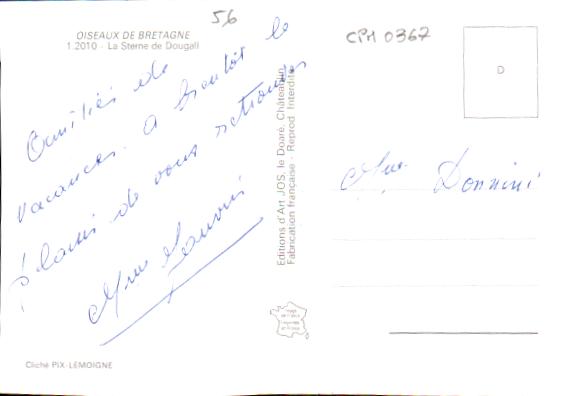 56
CPM 0367
OISEAUX DE BRETAGNE
1.2010 - La Sterne de Dougall
D
Amitiés de
vacances. A bientôt le
plaisir de vous retrouver
Mme
Mme Donnini
Editions d'Art JOS, le Doaré, Châteaulin
Fabrication française - Reprod. Interdite
Cliché PIX-LEMOIGNE